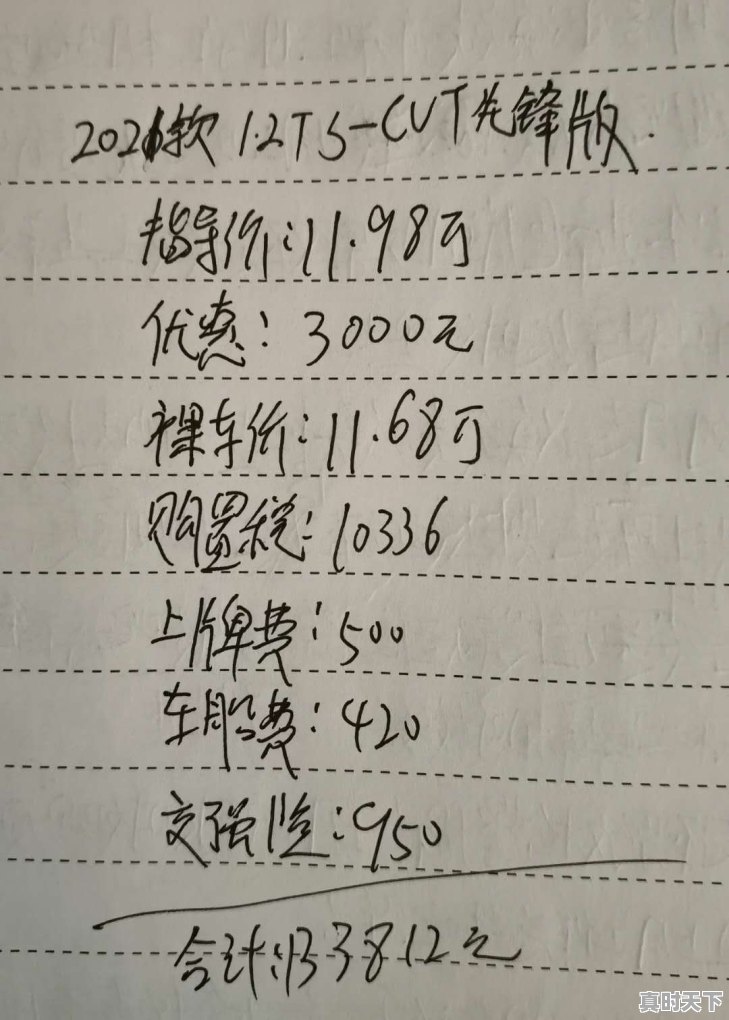 2021款 1.2T S-CVT先锋版.
指导价:11.98万
优惠:3000元
裸车价:11.68万
购置税:10336
上牌费:500
车船费:420
交强险:950
合计:133812元
真时天下